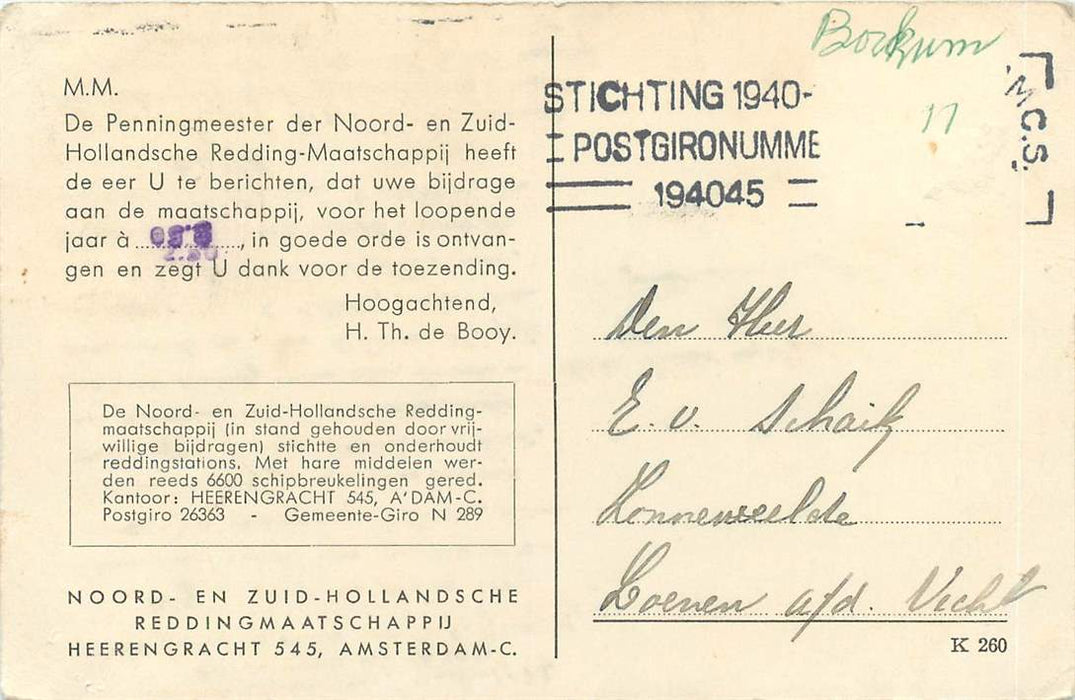 M.M.
De Penningmeester der Noord- en Zuid-
Hollandsche Redding-Maatschappij heeft
de eer U te berichten, dat uwe bijdrage
aan de maatschappij, voor het loopende
jaar à ........, in goede orde is ontvan-
gen en zegt U dank voor de toezending.
Hoogachtend,
H. Th. de Booy.
De Noord- en Zuid-Hollandsche Redding-
maatschappij (in stand gehouden door vrij-
willige bijdragen) stichtte en onderhoudt
reddingstations. Met hare middelen wer-
den reeds 6600 schipbreukelingen gered.
Kantoor: HEERENGRACHT 545, A'DAM-C.
Postgiro 26363 - Gemeente-Giro N 289
NOORD- EN ZUID-HOLLANDSCHE
REDDINGMAATSCHAPPIJ
HEERENGRACHT 545, AMSTERDAM-C.
Borkum
17
STICHTING 1940-
POSTGIRONUMME
194045
M.C.S.
Den Heer
E. v. Schaik
Zonneweelde
Loenen a/d. Vecht
K 260